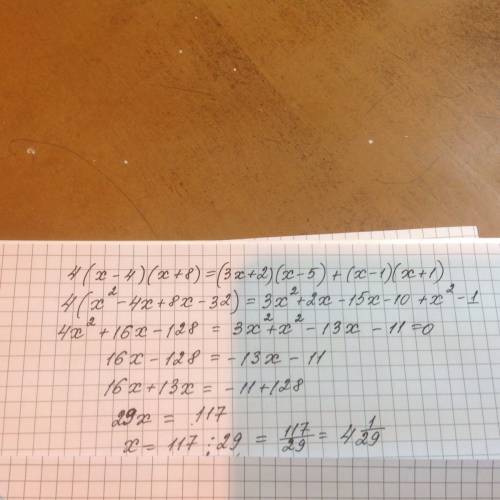 4(x-4)(x+8)=(3x+2)(x-5)+(x-1)(x+1)
4(x²-4x+8x-32)=3x²+2x-15x-10+x²-1
4x²+16x-128 = 3x²+x²-13x-11=0
16x-128 = -13x-11
16x+13x = -11+128
29x = 117
x = 117:29 = 117/29 = 4 1/29